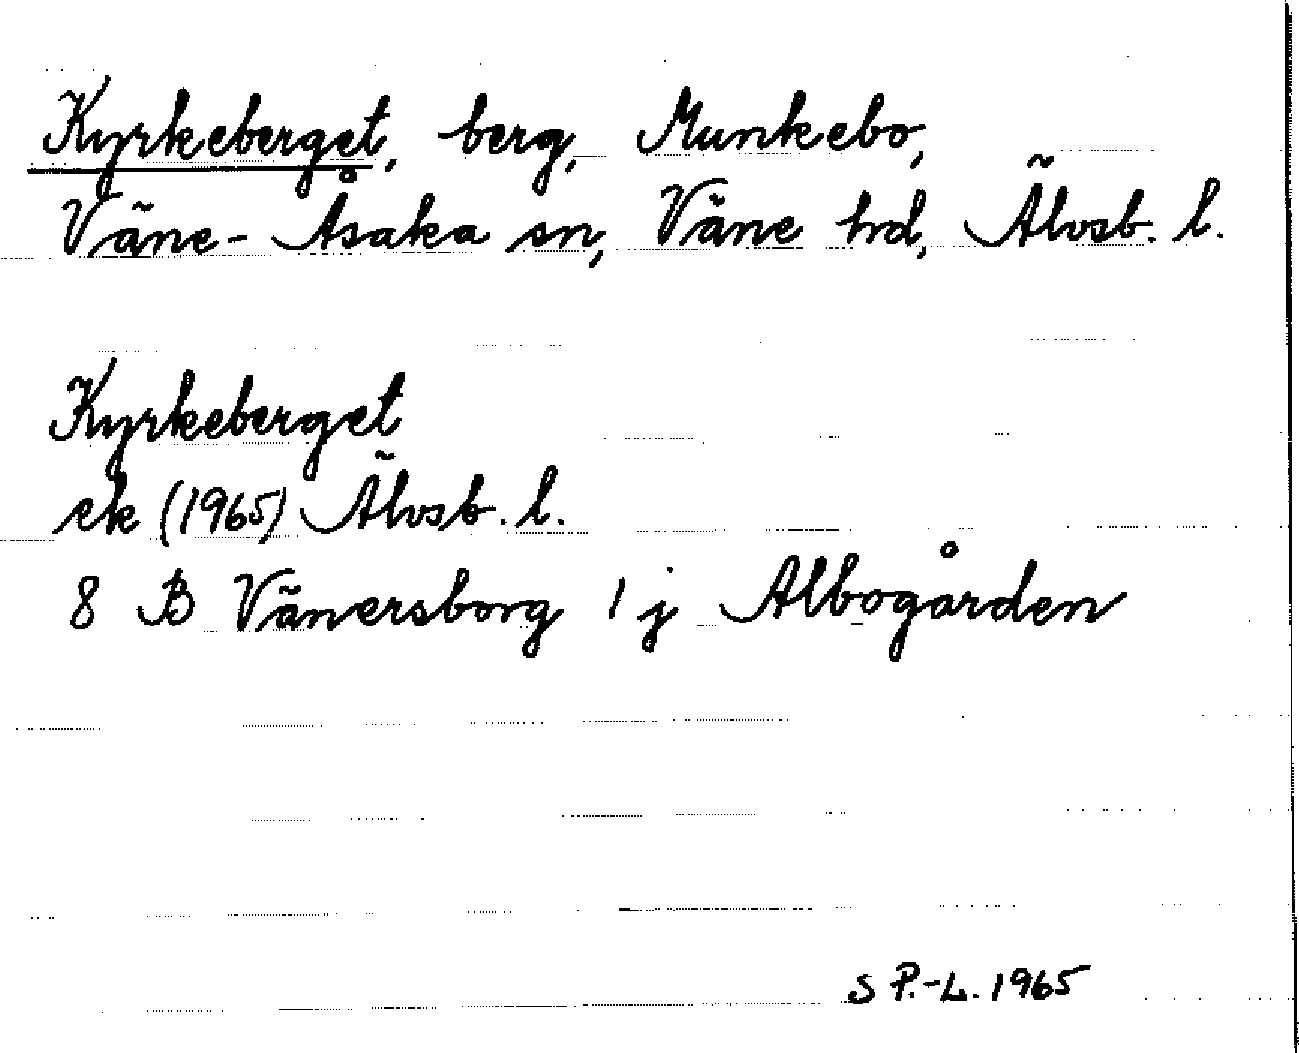 Kyrkeberget, berg, Munkebo,
Väne-Åsaka sn, Väne hd, Älvsb. l.
Kyrkeberget
ek (1965) Älvsb. l.
8 B Vänersborg 1 j Albogården
S P.-L. 1965